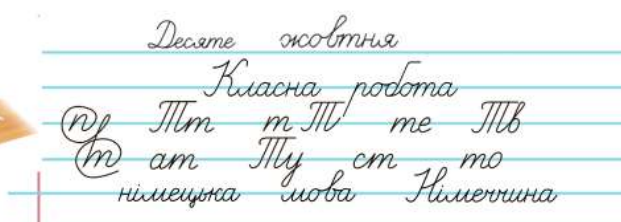 Десяте жовтня
Класна робота
п Тт т Т те Тв
т ат Ту ст то
німецька мова Німеччина